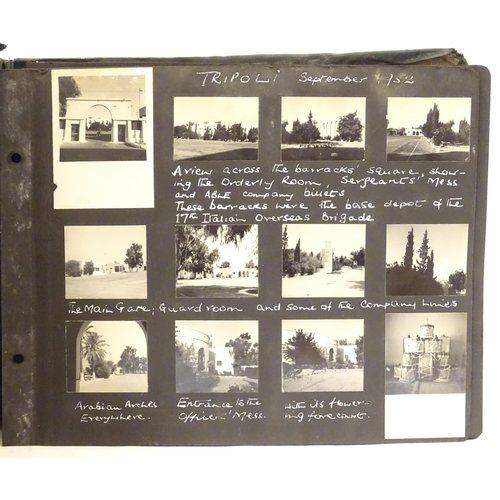 TRIPOLI September 1952
A view across the barracks square, show-
ing the Orderly Room, Sergeants' Mess
and ABLE company billets
These barracks were the base depot of the
17th Italian Overseas Brigade
The Main Gate, Guardroom and some of the Company Lines
Arabian Arches
Everywhere.
Entrance to the
Officers' Mess.
with its flower-
ing forecourt.